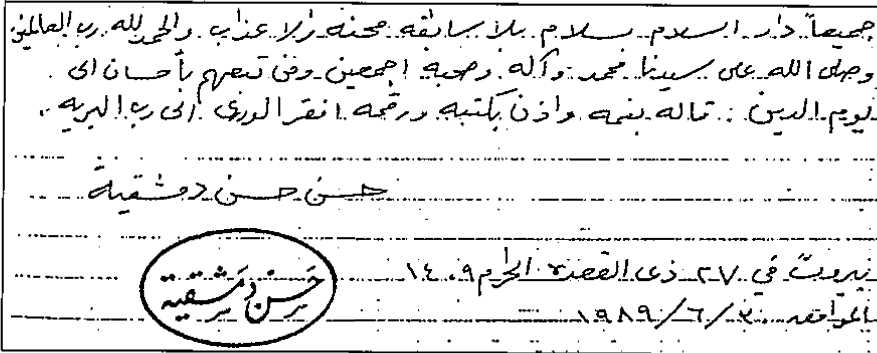 جميعاً دار السلام بسلام بلا سابقة محنة ولا عذاب والحمد لله رب العالمين
وصلى الله على سيدنا محمد وآله وصحبه اجمعين ومن تبعهم بأحسان الى
يوم الدين : قاله بفمه واذن بكتبه ورقمه افقر الورى الى رب البريه .
حسن حسن دمشقية
بيروت في ٢٧ ذي القعدة الحرام ١٤٠٩
الموافق ٣٠/٦/١٩٨٩
حَسَن دِمَشقية